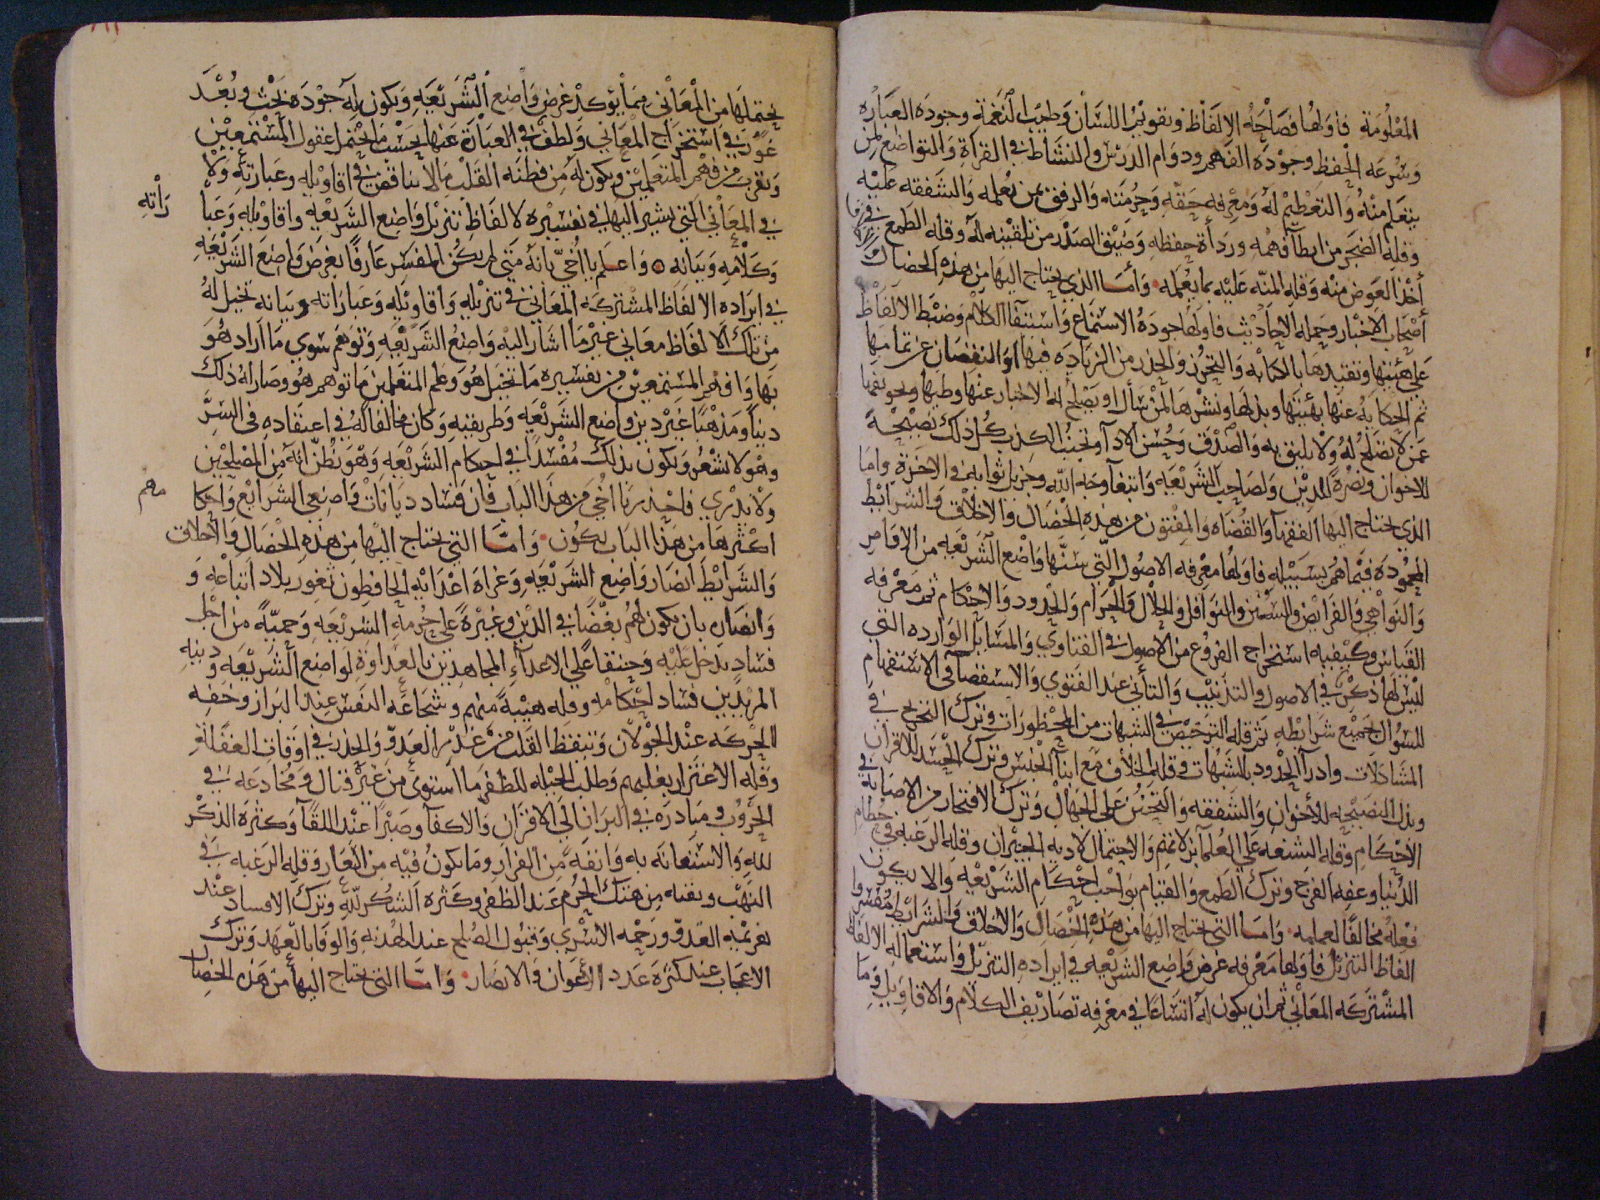 المعلومة فاولها فصاحة الالفاظ وتقويم اللسان وطيب النغمة وجودة العبارة
وسرعة الحفظ وجودة الفهم ودوام الدرس والنشاط في القراة والتواضع لمن
يتعلم منه والتعظيم له ومعرفه حقه وحرمته والرفق بمن يعلمه والشفقه عليه
وقلة الضجر من ابطا فهمه ورداة حفظه وضيق الصدر من تلقينه له وقلة الطمع في
أخذ العوض منه وقلة المنة عليه بما يعلمه وأما الذي يحتاج اليها من هذه الخصال
أصحاب الاخبار وحملة الاحاديث فاولها جودة الاستماع واستيفا الكلام وضبط الالفاظ
على هيئتها وتقييدها بالكتابة والتحرز والحذر من الزيادة فيها او النقصان عن تمامها
ثم الحكاية عنها بهيئتها وبذلها ونشرها لمن سأل او يصلح له الاخبار عنها وطيها
عمن لا تصلح له ولا يليق به والصدق وحسن الادآ وتجنب الكذب كل ذلك نصيحة
للاخوان ونصرة للدين ولصاحب الشريعة وابتغآ وجه الله وجزيل ثوابه في الاخرة واما
الذي يحتاج اليها الفقهآ والقضاة والمفتون من هذه الخصال والاخلاق والشرايط
المحمودة فيما هم بسبيله فاولها معرفة الاصول التي سنها واضع الشريعة من الاوامر
والنواهي والفرايض والسنن والنوافل والحلال والحرام والحدود والاحكام ثم معرفه
القياس وكيفيه استخراج الفروع من الاصول في الفتاوي والمسايل الوارده التي
ليس لها ذكر في الاصول والتذنيب والتأني عند الفتوي والاستقصآ في الاستفهام
للسؤال بجميع شرايطه ثم قلة الترخيص في الشبهات من المحظورات وترك التحريج في
المشاكلات وادرآ الحدود بالشبهات وقلة الخلاف مع ابنآ الجنس وترك الحسد للاقران
وبذل النصيحة للاخوان والشفقه والتحنن على الجهال وترك الافتخار من الاصابة في
الاحكام وقلة الشنعه على العلمآ بزلاتهم والاحتمال لاذية الجيران وقلة الرغبة في حطام
الدنيا وعفة الفرج وترك الطمع والقيام بواجب احكام الشريعة والا يكون
فعله مخالفا لعلمه واما التي يحتاج اليها من هذه الخصال والاخلاق والشرايط مفسروا
الفاظ التنزيل فاولها معرفة غرض واضع الشريعه في ايراده التنزيل واستعماله الالفاظ
المشتركة المعاني ثم ان يكون له اتساعا في معرفه تصاريف الكلام والاقاويل وما
يحتملها من المعاني مما يؤكد غرض واضع الشريعه ويكون له جودة بحث وبعد
غور في استخراج المعاني ولطف في العبارة عنها بحسب ما يحتمل عقول المستمعين
وتقرب من فهم المتعلمين ويكون له من فطنة القلب ما لا يناقض في اقاويله وعباراته ولا
في المعاني التي يشير اليها في تفسيره لالفاظ تنزيل واضع الشريعه واقاويله وعبا
راته
وكلامه وبيانه واعلم يا أخي بانه متى لم يكن المفسر عارفا بغرض واضع الشريعة
في ايراده الالفاظ المشتركة المعاني في تنزيله واقاويله وعباراته وبيانه تخيل له
من تلك الالفاظ معاني غير ما اشار اليه واضع الشريعه وتوهم سوي ما اراد هو
بها وافهم المستمعين من تفسيره ما تخيل هو وعلم المتعلمين ما توهم هو وصار له ذلك
دينا ومذهبا غير دين واضع الشريعه وطريقته وكان مخالفا له في اعتقاده في السر
وهو لا يشعر ويكون بذلك مفسدا في احكام الشريعه وهو يظن انه من المصلحين
ولا يدري فاحذر يا أخي من هذا الباب فان فساد ديانات واضعي الشرايع واحكا
مهم
اكثرها من هذا الباب يكون واما التي يحتاج اليها من هذه الخصال والاخلاق
والشرايط انصار واضع الشريعه وغزاة اعدايه الحافظون ثغور بلاد اتباعه و
وانصاره بان يكون لهم بغضا في الدين وغيرة على حرمة الشريعه وحمية من اجل
فساد يدخل عليه وحنقا على الاعدآء المجاهدين بالعداوة لواضع الشريعه ودينه
المريدين فساد احكامه وقله هيبة منهم وشجاعة النفس عند البراز وخفه
الحركه عند الجولان وتيقظ القلب من غدر العدو والحذر في اوقات الغفلة
وقلة الاغترار بغلبهم وطلب الحيله للظفر ما استوى من غير قتال ومخادعه في
الحروب ومبادرة في البراز الى الاقران والاكفآ وصبرا عند اللقآ وكثرة الذكر
لله والاستعانة به وانفة من الفرار وما يكون فيه من العار وقلة الرغبة في
النهب وبقيه من هتك الحرم عند الظفر وكثرة الشكر لله وترك الافساد عند
هزيمة العدو ورحمه الاسرى وقبول الصلح عند الهدنه والوفا بالعهد وترك
الاعجاب عند كثرة عدد الأعوان والانصار واما التي يحتاج اليها من هذه الخصال